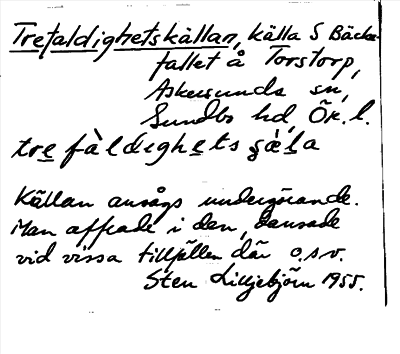 Trefaldighetskällan, källa S Bäcka
fallet å Torstorp,
Askersunds sn,
Sundbo hd, Ör. l.
tre fàldighets çä̀la
Källan ansågs undergörande.
Man offrade i den, dansade
vid vissa tillfällen där o.s.v.
Sten Lilljebjörn 1955.